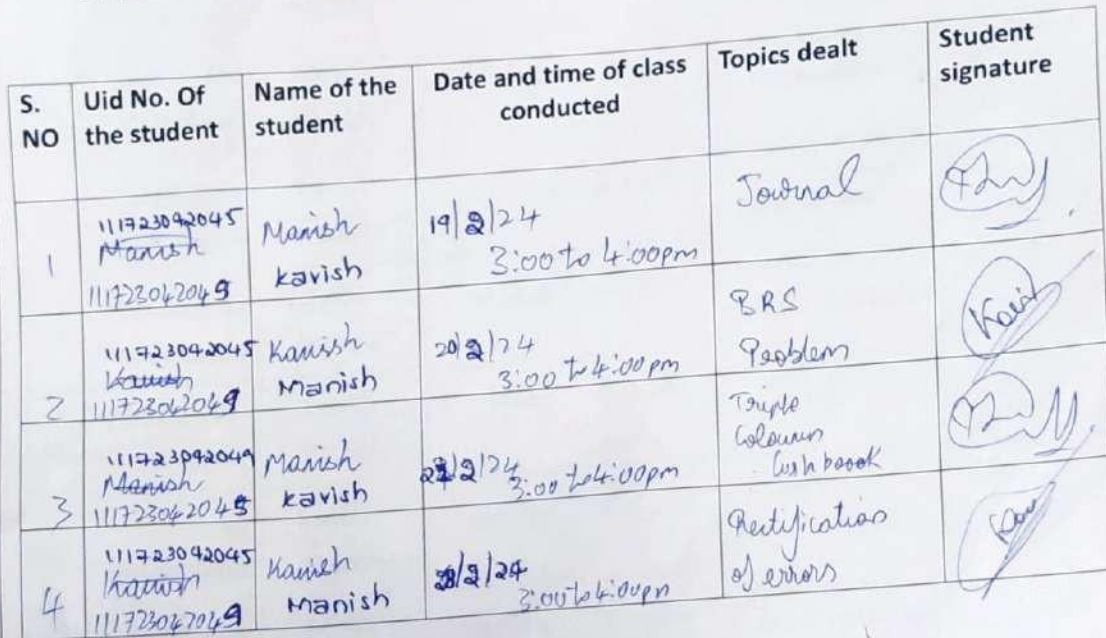 S. NO
Uid No. Of the student
Name of the student
Date and time of class conducted
Topics dealt
Student signature
1
111723042045
Manish
111723042049
Manish
kavish
19/2/24
3:00 to 4:00pm
Journal
2
111723042045
Kavish
111723042049
Kavish
Manish
20/2/24
3:00 to 4:00pm
BRS
Problem
Kavish
3
111723042049
Manish
111723042045
Manish
kavish
/2/24
3:00 to 4:00pm
Triple
Column
Cash boook
4
111723042045
Kavish
111723042049
Kavish
Manish
/2/24
3:00 to 4:00pm
Rectification
of errors